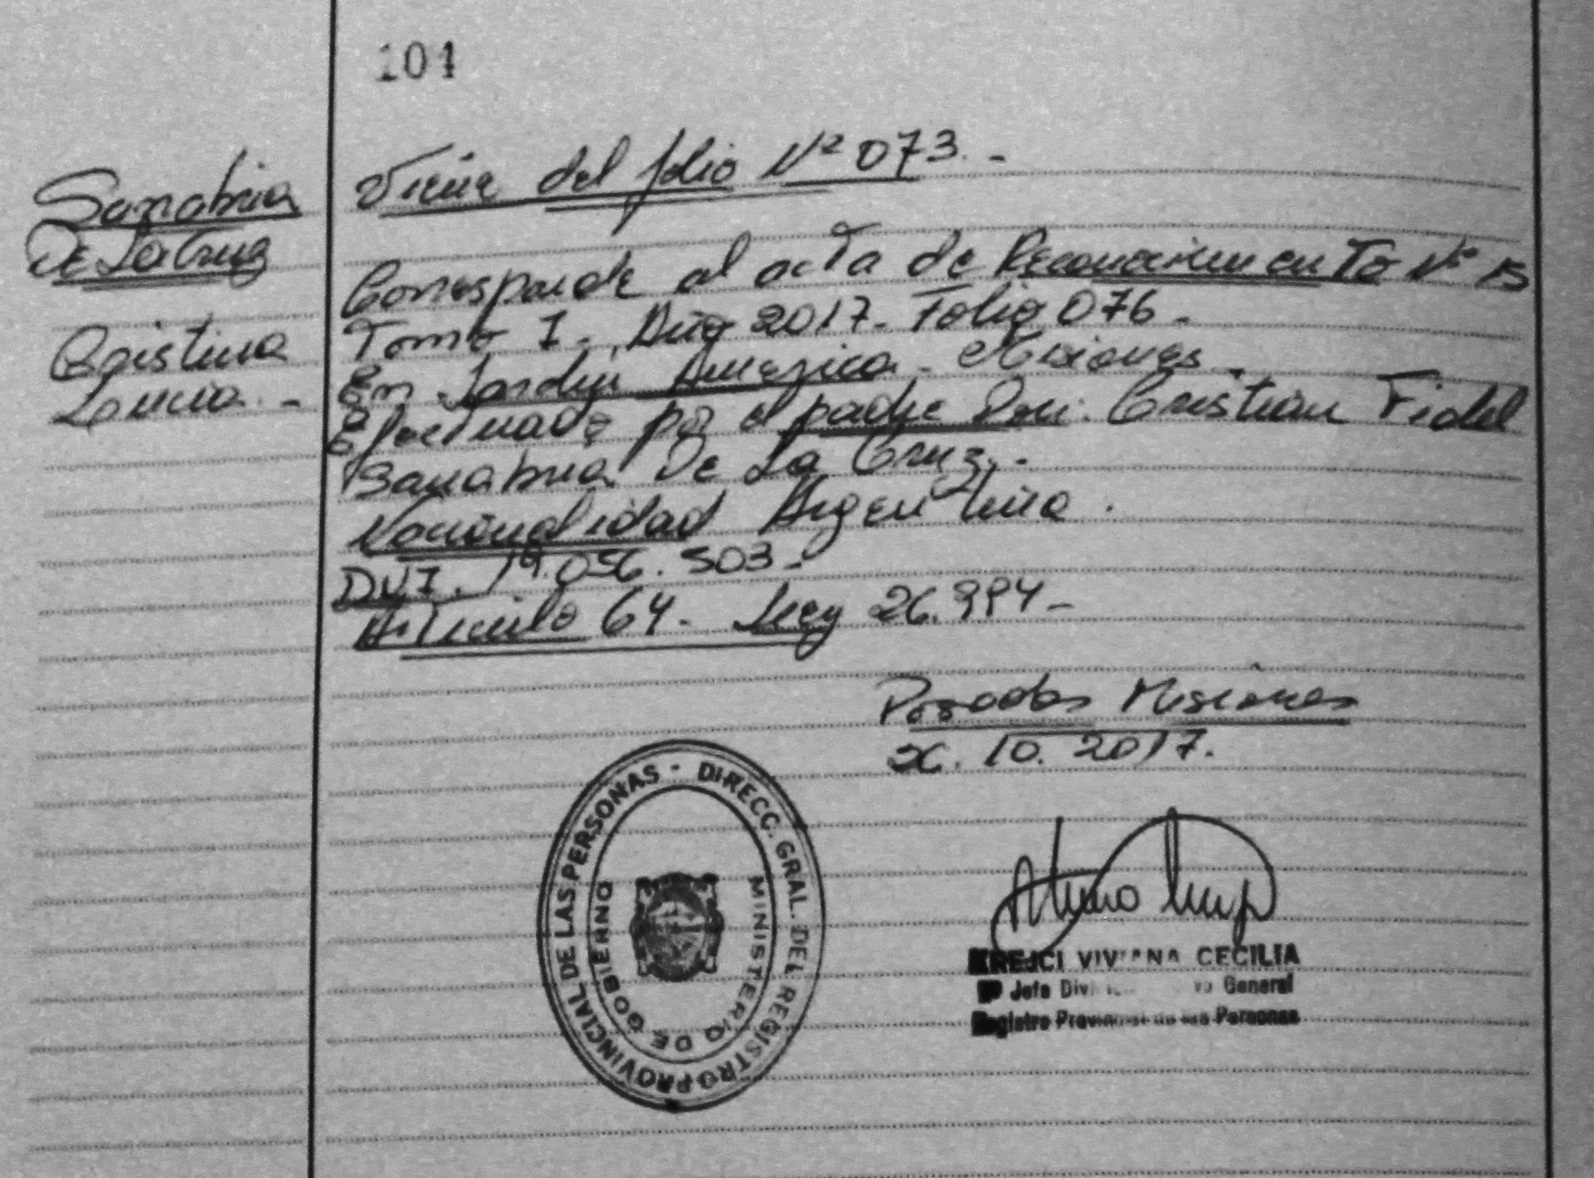 104
Sanabria
De La Cruz
Cristina
Lucia. -
Viene del folio Nº 073. -
Corresponde al acta de Reconocimiento Nº 15
Tomo I. Año 2017. Folio 076 -
En Jardín America. Misiones.
Efectuado por el padre Don: Cristian Fidel
Sanabria De La Cruz. -
Nacionalidad Argentina.
DNI. 19.056.503 -
Articulo 64. Ley 26.994 -
Posadas Misiones
26.10.2017.
DIRECC. GRAL. DEL REGISTRO PROVINCIAL DE LAS PERSONAS -
MINISTERIO DE GOBIERNO
KREJCI VIVIANA CECILIA
Jefe General
Registro Provincial de las Personas